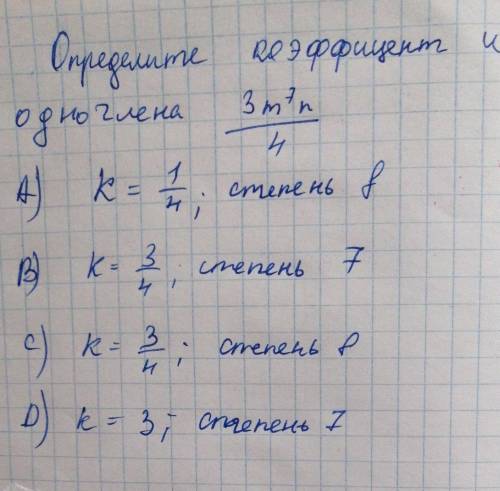 Определите коэффицент и
одночлена 3m⁷n/4
A) k = 1/4; степень 8
B) k = 3/4; степень 7
C) k = 3/4; степень 8
D) k = 3; степень 7